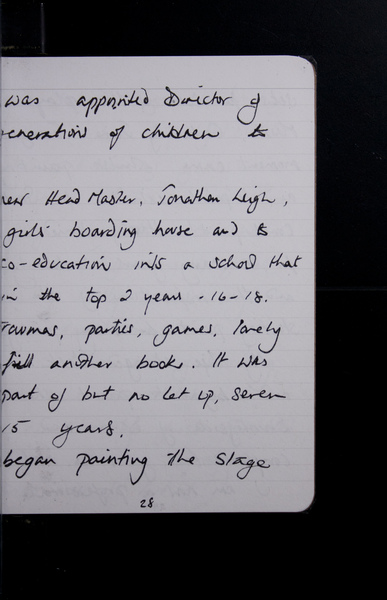 was appointed Director of
enerations of children to
new Head Master, Jonathan Leigh,
girls boarding house and to
co-education into a school that
in the top 2 years -16-18.
raumas, parties, games, lonely
fill another book. It was
part of but no let up, seven
15 years.
began painting the stage
28